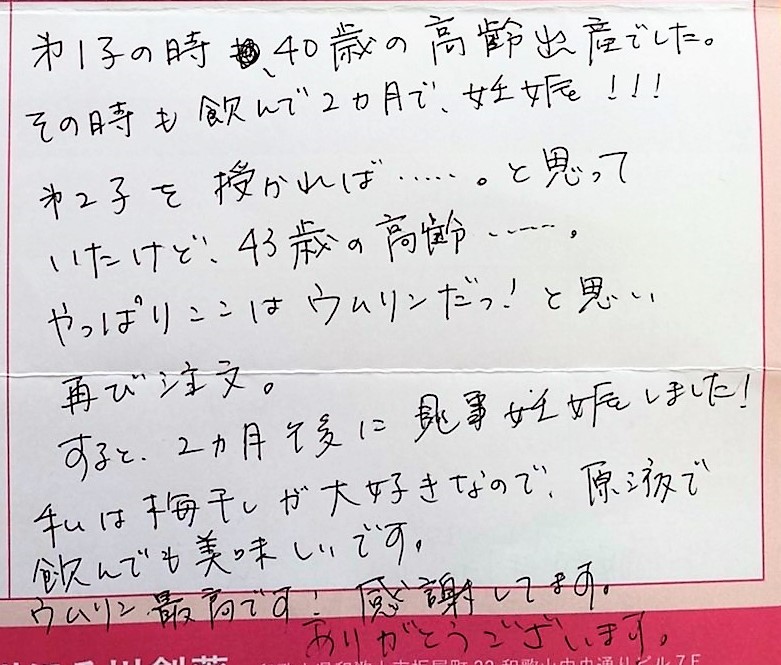 第1子の時、40歳の高齢出産でした。
その時も飲んで2カ月で、妊娠!!!
第2子を授かれば……。と思って
いたけど、43歳の高齢……。
やっぱりここはウムリンだっ!と思い
再び注文。
すると、2カ月後に見事妊娠しました!
私は梅干しが大好きなので、原液で
飲んでも美味しいです。
ウムリン最高です!感謝してます。
ありがとうございます。